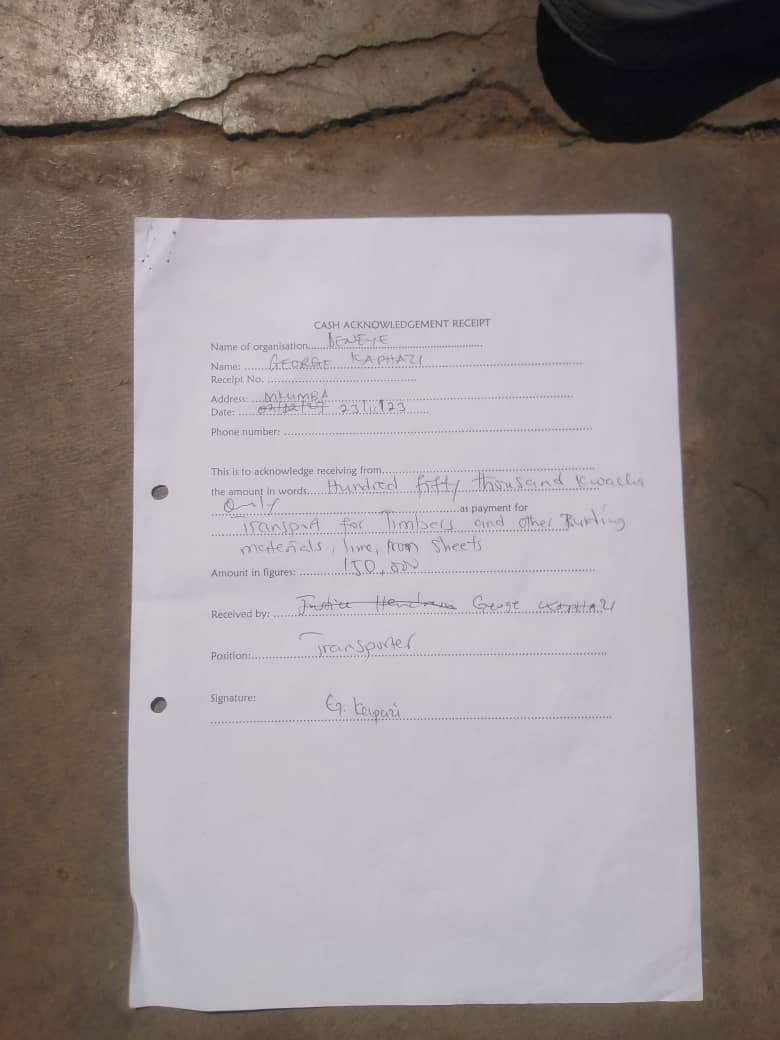 CASH ACKNOWLEDGEMENT RECEIPT
Name of organisation DENEYE
Name: GEORGE KAPHAZI
Receipt No.
Address: MKUMBA
Date: 23/11/23
Phone number:
This is to acknowledge receiving from
the amount in words Hundred fifty thousand Kwacha
Only as payment for
Transport for Timbers and other
materials, lime, Iron Sheets
Amount in figures: 150,000
Received by: Justice George KAPHAZI
Position: Transporter
Signature: G. Kaipazi